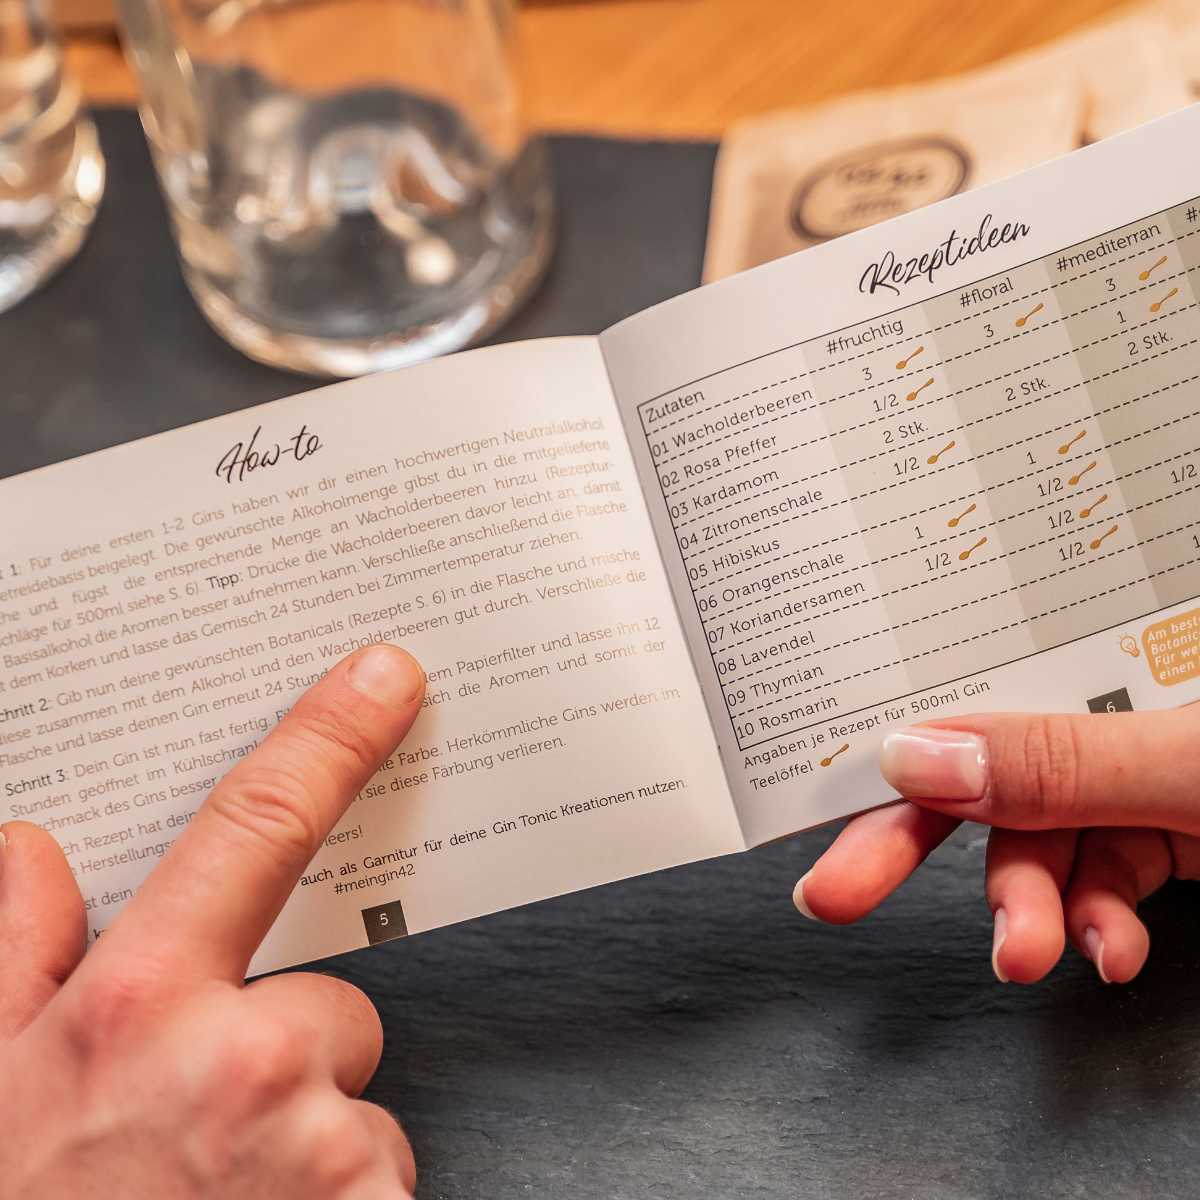 How-to
1: Für deine ersten 1-2 Gins haben wir dir einen hochwertigen Neutralalkohol
etreidebasis beigelegt. Die gewünschte Alkoholmenge gibst du in die mitgelieferte
che und fügst die entsprechende Menge an Wacholderbeeren hinzu (Rezeptur-
chläge für 500ml siehe S. 6). Tipp: Drücke die Wacholderbeeren davor leicht an, damit
Basisalkohol die Aromen besser aufnehmen kann. Verschließe anschließend die Flasche
t dem Korken und lasse das Gemisch 24 Stunden bei Zimmertemperatur ziehen.
chritt 2: Gib nun deine gewünschten Botanicals (Rezepte S. 6) in die Flasche und mische
diese zusammen mit dem Alkohol und den Wacholderbeeren gut durch. Verschließe die
Flasche und lasse deinen Gin erneut 24 Stund
Schritt 3: Dein Gin ist nun fast fertig. em Papierfilter und lasse ihn 12
Stunden geöffnet im Kühlschrank sich die Aromen und somit der
chmack des Gins besser
ch Rezept hat dein le Farbe. Herkömmliche Gins werden im
Herstellungs sie diese Färbung verlieren.
st dein heers!
auch als Garnitur für deine Gin Tonic Kreationen nutzen.
#meingin42
5
Rezeptideen
Zutaten #fruchtig #floral #mediterran
01 Wacholderbeeren 3 3 3
02 Rosa Pfeffer 1/2 1
03 Kardamom 2 Stk. 2 Stk. 2 Stk.
04 Zitronenschale 1/2
05 Hibiskus 1
06 Orangenschale 1 1/2
07 Koriandersamen 1/2 1/2 1/2
08 Lavendel 1/2
09 Thymian 1
10 Rosmarin
Angaben je Rezept für 500ml Gin
Teelöffel
Am best
Botanic
Für we
einen
6